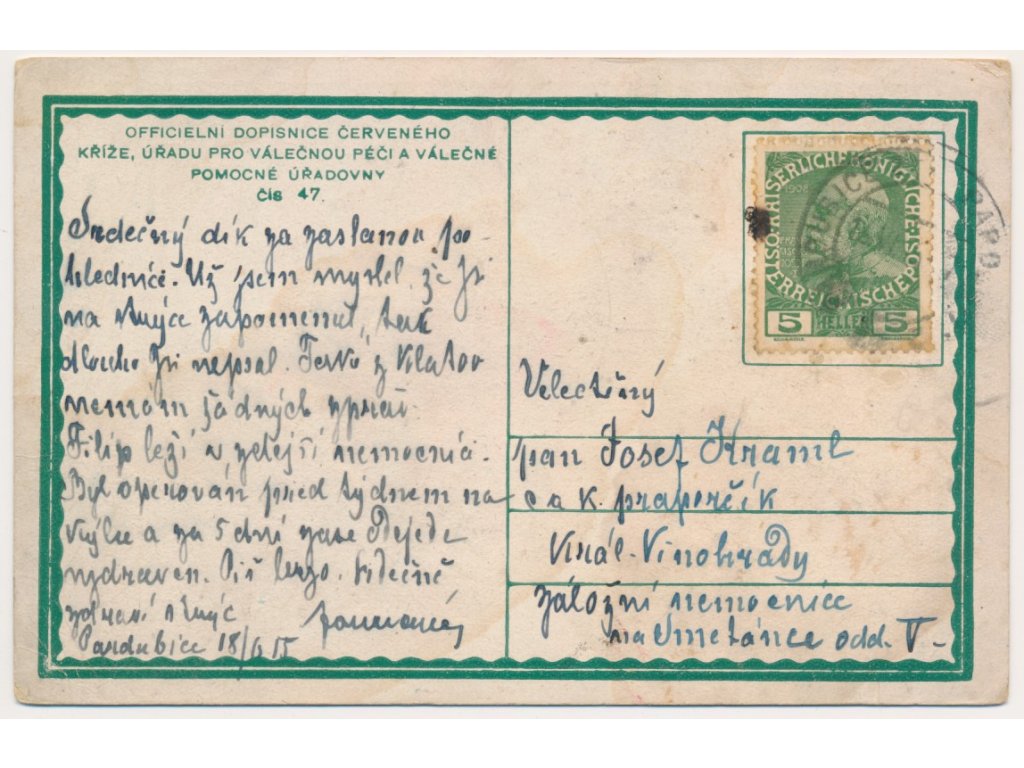 OFFICIELNÍ DOPISNICE ČERVENÉHO
KŘÍŽE, ÚŘADU PRO VÁLEČNOU PÉČI A VÁLEČNÉ
POMOCNÉ ÚŘADOVNY
čís 47.
Srdečný dík za zaslanou po-
hlednici. Už jsem myslel, že jsi
na strýce zapomenul, tak
dlouho jsi nepsal. z Klatov
nemám žádných zpráv.
Filip leží v zdejší nemocnici.
Byl operován před týdnem na
kýlu a za 5 dní zase odejede
uzdraven. Piš brzo. Srdečně
zdraví strýc
Pardubice 18/6 15
KAISERLICHE KÖNIGLICHE ÖSTERREICHISCHE POST
1908
5 HELLER 5
PARDUBICE
PARD
Velectěný
pan Josef Kraml
c a k. praporčík
Král. Vinohrady
záložní nemocnice
na Smetánce odd. V-